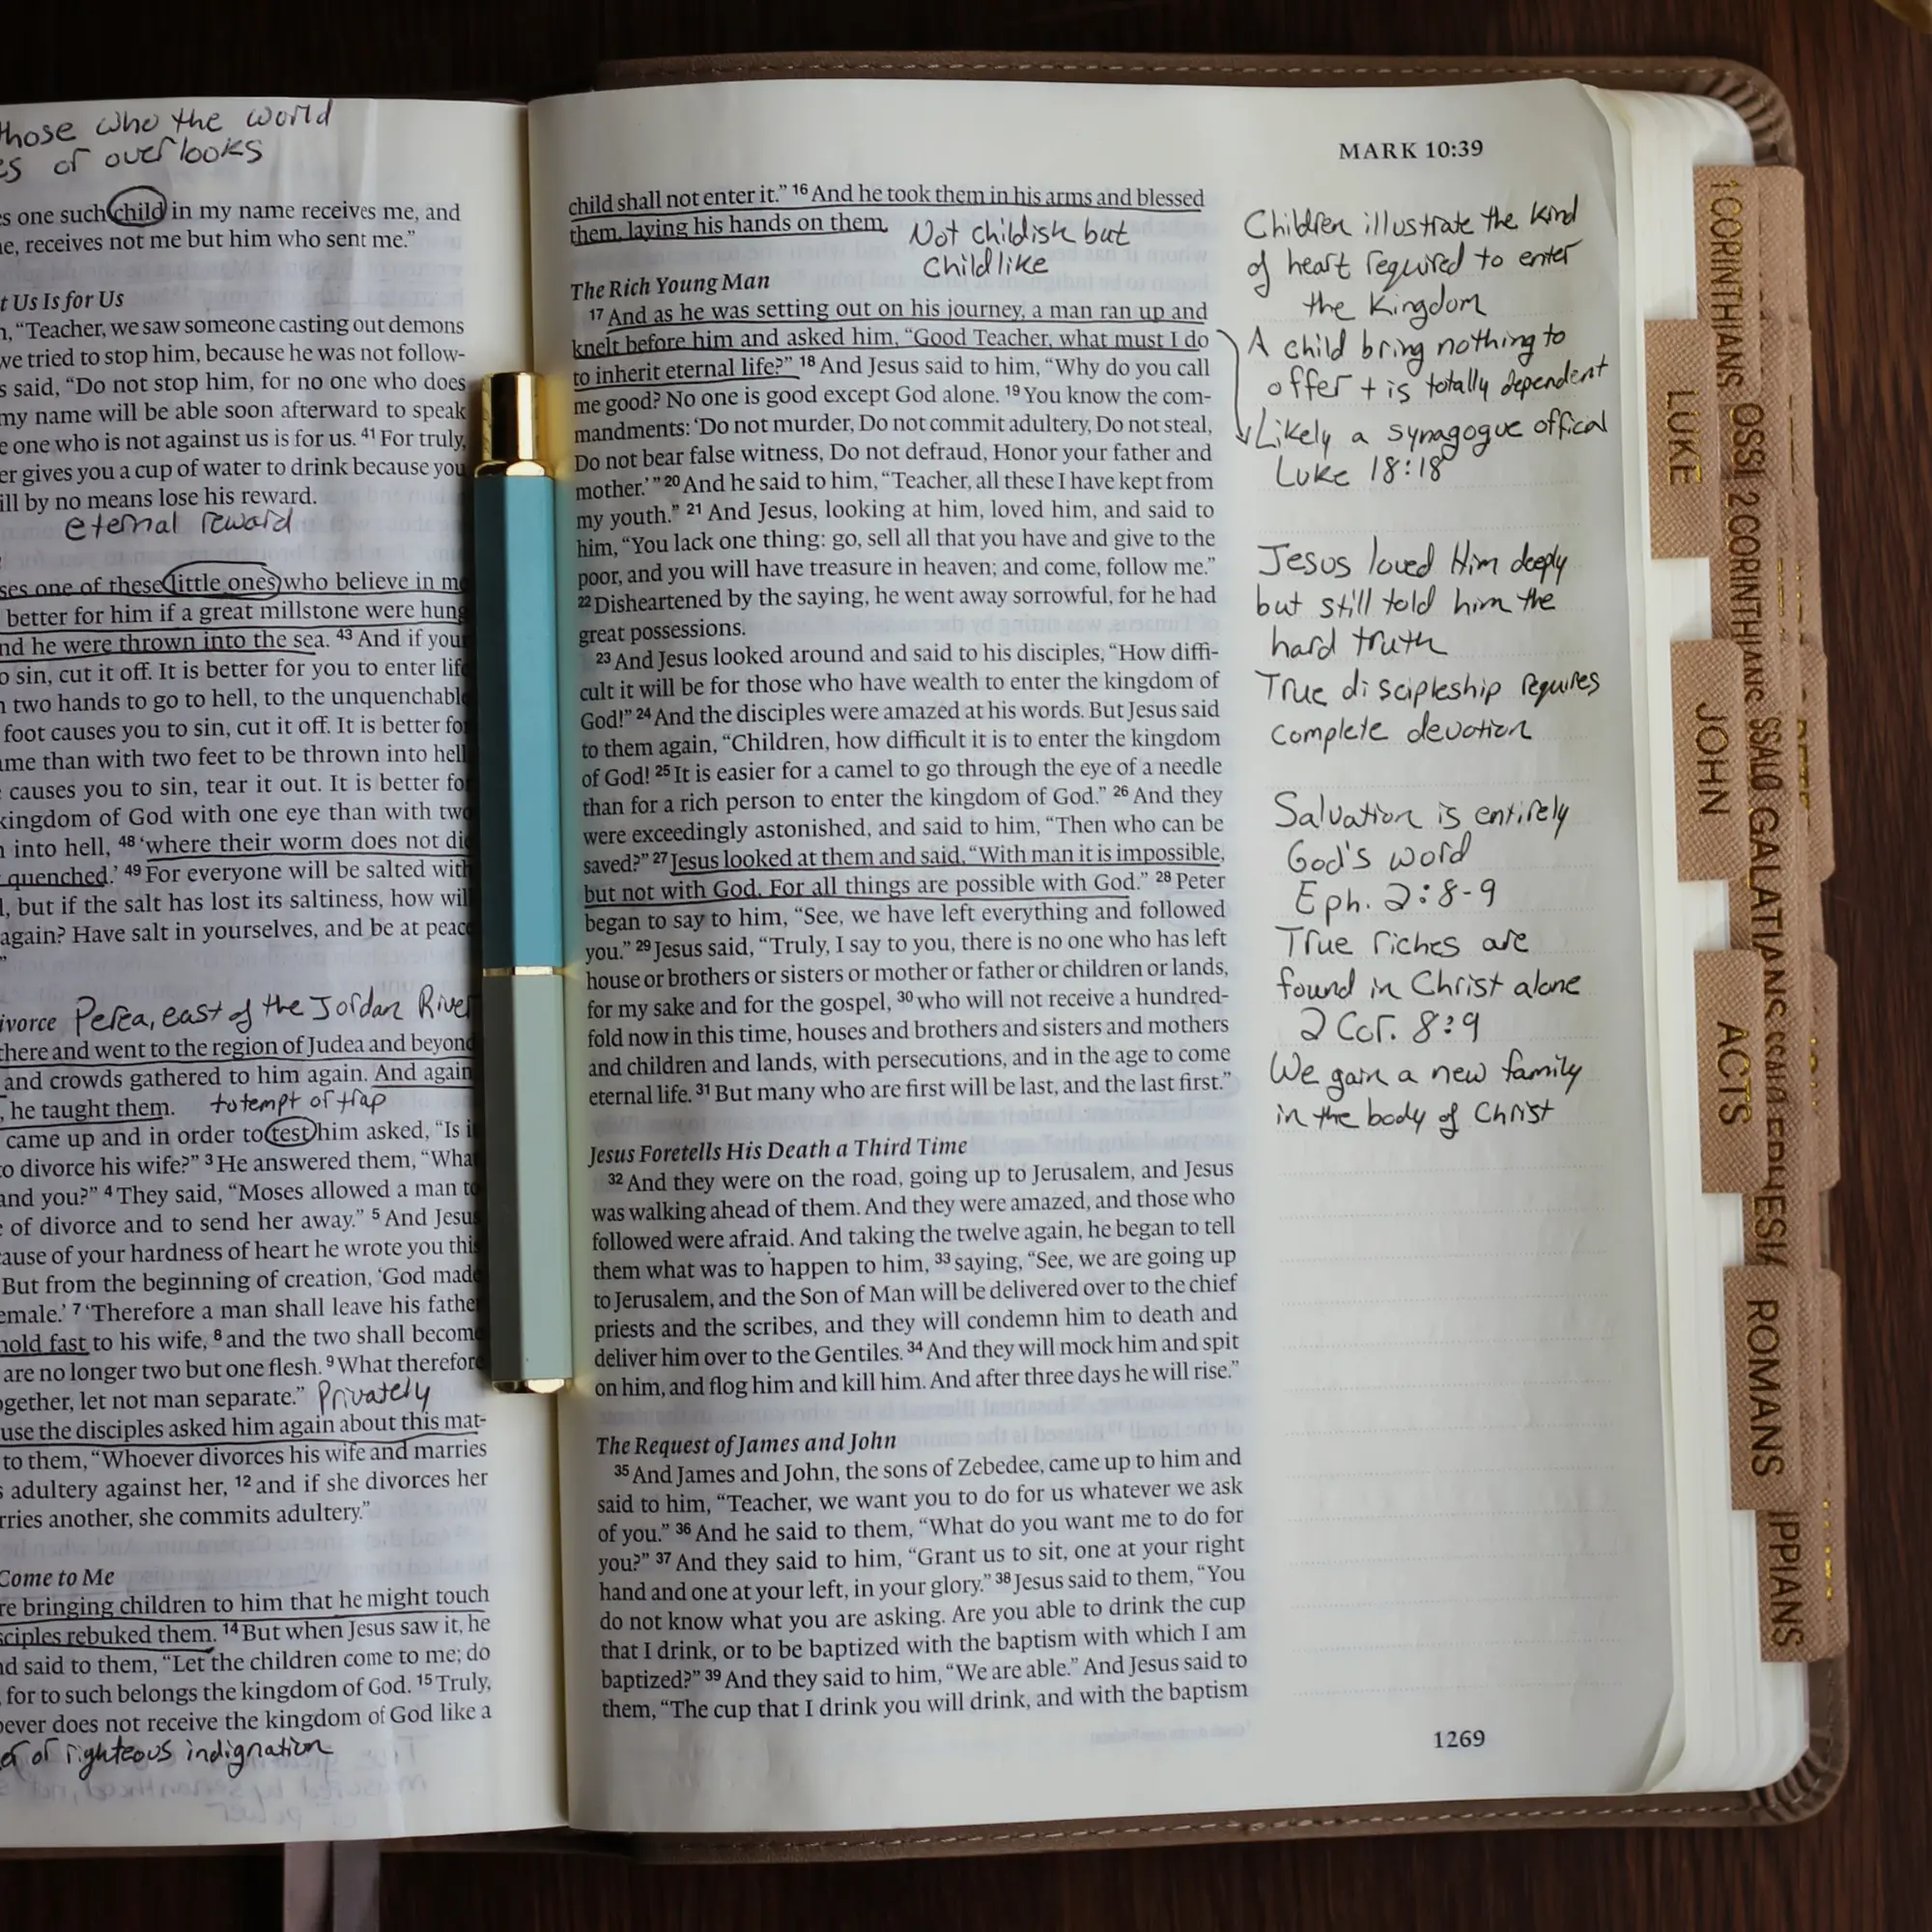 those who the world
of overlooks
s one such child in my name receives me, and
e, receives not me but him who sent me.”
t Us Is for Us
, “Teacher, we saw someone casting out demons
we tried to stop him, because he was not follow-
s said, “Do not stop him, for no one who does
my name will be able soon afterward to speak
e one who is not against us is for us. 41 For truly,
er gives you a cup of water to drink because you
ill by no means lose his reward.
eternal reward
ses one of these little ones who believe in me
better for him if a great millstone were hung
nd he were thrown into the sea. 43 And if your
o sin, cut it off. It is better for you to enter life
two hands to go to hell, to the unquenchable
foot causes you to sin, cut it off. It is better for
ame than with two feet to be thrown into hell
causes you to sin, tear it out. It is better for
kingdom of God with one eye than with two
into hell, 48 ‘where their worm does not die
quenched.’ 49 For everyone will be salted with
, but if the salt has lost its saltiness, how will
again? Have salt in yourselves, and be at peace
”
ivorce Perea, east of the Jordan River
there and went to the region of Judea and beyond
and crowds gathered to him again. And again
, he taught them. to tempt or trap
came up and in order to test him asked, “Is i
o divorce his wife?” 3 He answered them, “What
and you?” 4 They said, “Moses allowed a man to
of divorce and to send her away.” 5 And Jesus
ause of your hardness of heart he wrote you this
But from the beginning of creation, ‘God made
emale.’ 7 ‘Therefore a man shall leave his father
hold fast to his wife, 8 and the two shall become
are no longer two but one flesh. 9 What therefore
ogether, let not man separate.” Privately
use the disciples asked him again about this mat-
to them, “Whoever divorces his wife and marries
s adultery against her, 12 and if she divorces her
rries another, she commits adultery.”
Come to Me
re bringing children to him that he might touch
sciples rebuked them. 14 But when Jesus saw it, he
nd said to them, “Let the children come to me; do
, for to such belongs the kingdom of God. 15 Truly,
oever does not receive the kingdom of God like a
or righteous indignation
MARK 10:39
child shall not enter it.” 16 And he took them in his arms and blessed
them, laying his hands on them.
Not childish but
childlike
The Rich Young Man
17 And as he was setting out on his journey, a man ran up and
knelt before him and asked him, “Good Teacher, what must I do
to inherit eternal life?” 18 And Jesus said to him, “Why do you call
me good? No one is good except God alone. 19 You know the com-
mandments: ‘Do not murder, Do not commit adultery, Do not steal,
Do not bear false witness, Do not defraud, Honor your father and
mother.’” 20 And he said to him, “Teacher, all these I have kept from
my youth.” 21 And Jesus, looking at him, loved him, and said to
him, “You lack one thing: go, sell all that you have and give to the
poor, and you will have treasure in heaven; and come, follow me.”
22 Disheartened by the saying, he went away sorrowful, for he had
great possessions.
23 And Jesus looked around and said to his disciples, “How diffi-
cult it will be for those who have wealth to enter the kingdom of
God!” 24 And the disciples were amazed at his words. But Jesus said
to them again, “Children, how difficult it is to enter the kingdom
of God! 25 It is easier for a camel to go through the eye of a needle
than for a rich person to enter the kingdom of God.” 26 And they
were exceedingly astonished, and said to him, “Then who can be
saved?” 27 Jesus looked at them and said, “With man it is impossible,
but not with God. For all things are possible with God.” 28 Peter
began to say to him, “See, we have left everything and followed
you.” 29 Jesus said, “Truly, I say to you, there is no one who has left
house or brothers or sisters or mother or father or children or lands,
for my sake and for the gospel, 30 who will not receive a hundred-
fold now in this time, houses and brothers and sisters and mothers
and children and lands, with persecutions, and in the age to come
eternal life. 31 But many who are first will be last, and the last first.”
Jesus Foretells His Death a Third Time
32 And they were on the road, going up to Jerusalem, and Jesus
was walking ahead of them. And they were amazed, and those who
followed were afraid. And taking the twelve again, he began to tell
them what was to happen to him, 33 saying, “See, we are going up
to Jerusalem, and the Son of Man will be delivered over to the chief
priests and the scribes, and they will condemn him to death and
deliver him over to the Gentiles. 34 And they will mock him and spit
on him, and flog him and kill him. And after three days he will rise.”
The Request of James and John
35 And James and John, the sons of Zebedee, came up to him and
said to him, “Teacher, we want you to do for us whatever we ask
of you.” 36 And he said to them, “What do you want me to do for
you?” 37 And they said to him, “Grant us to sit, one at your right
hand and one at your left, in your glory.” 38 Jesus said to them, “You
do not know what you are asking. Are you able to drink the cup
that I drink, or to be baptized with the baptism with which I am
baptized?” 39 And they said to him, “We are able.” And Jesus said to
them, “The cup that I drink you will drink, and with the baptism
Children illustrate the kind
of heart required to enter
the kingdom
A child bring nothing to
offer + is totally dependent
Likely a synagogue offical
Luke 18:18
Jesus loved Him deeply
but still told him the
hard truth
True discipleship requires
complete devotion
Salvation is entirely
God's word
Eph. 2:8-9
True riches are
found in Christ alone
2 Cor. 8:9
We gain a new family
in the body of Christ
1269
LUKE
JOHN
ACTS
ROMANS
1 CORINTHIANS
2 CORINTHIANS
GALATIANS
EPHESIA
IPPIANS